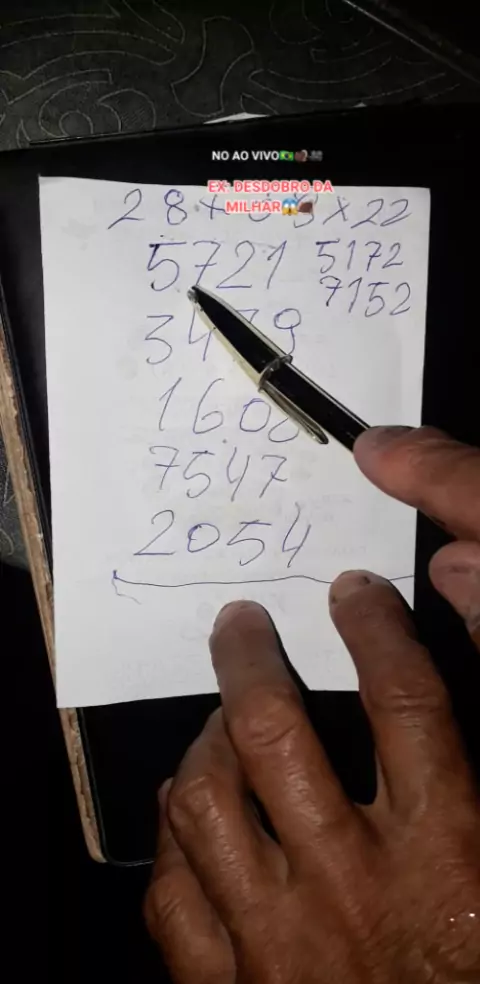 NO AO VIVO
EX: DESDOBRO DA
MILHAR
28 + 22
5721 5172
7152
3479
1608
7547
2054